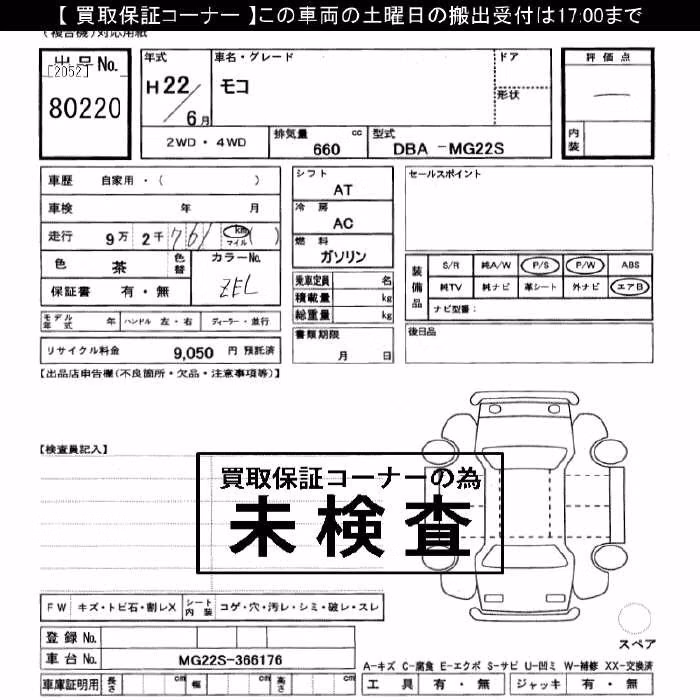 【 買取保証コーナー 】この車両の土曜日の搬出受付は17:00まで
(複合機)対応用紙
出品No.
[2052]
80220
年式
H22/6月
車名・グレード
モコ
ドア
形状
評価点
内装
2WD・4WD
排気量 660 cc
型式 DBA -MG22S
車歴 自家用・( )
車検 年 月
走行 9万 2千 761 km マイル ( )
色 茶 色替
カラーNo. ZEL
保証書 有・無
シフト AT
冷房 AC
燃料 ガソリン
乗車定員 名
積載量 kg
総重量 kg
セールスポイント
装備品 S/R 純A/W P/S P/W ABS
純TV 純ナビ 革シート 外ナビ エアB
ナビ型番:
モデル年式 年 ハンドル 左・右 ディーラー・並行
リサイクル料金 9,050 円 預託済
書類期限 月 日
後日品
【出品店申告欄(不良箇所・欠品・注意事項等)】
【検査員記入】
買取保証コーナーの為
未検査
FW キズ・トビ石・割レX シート内装 コゲ・穴・汚レ・シミ・破レ・スレ
登録No.
車台No. MG22S-366176
車庫証明用 長さ cm 幅 cm 高さ cm
スペア
A-キズ C-腐食 E-エクボ S-サビ U-凹ミ W-補修 XX-交換済
工具 有・無 ジャッキ 有・無